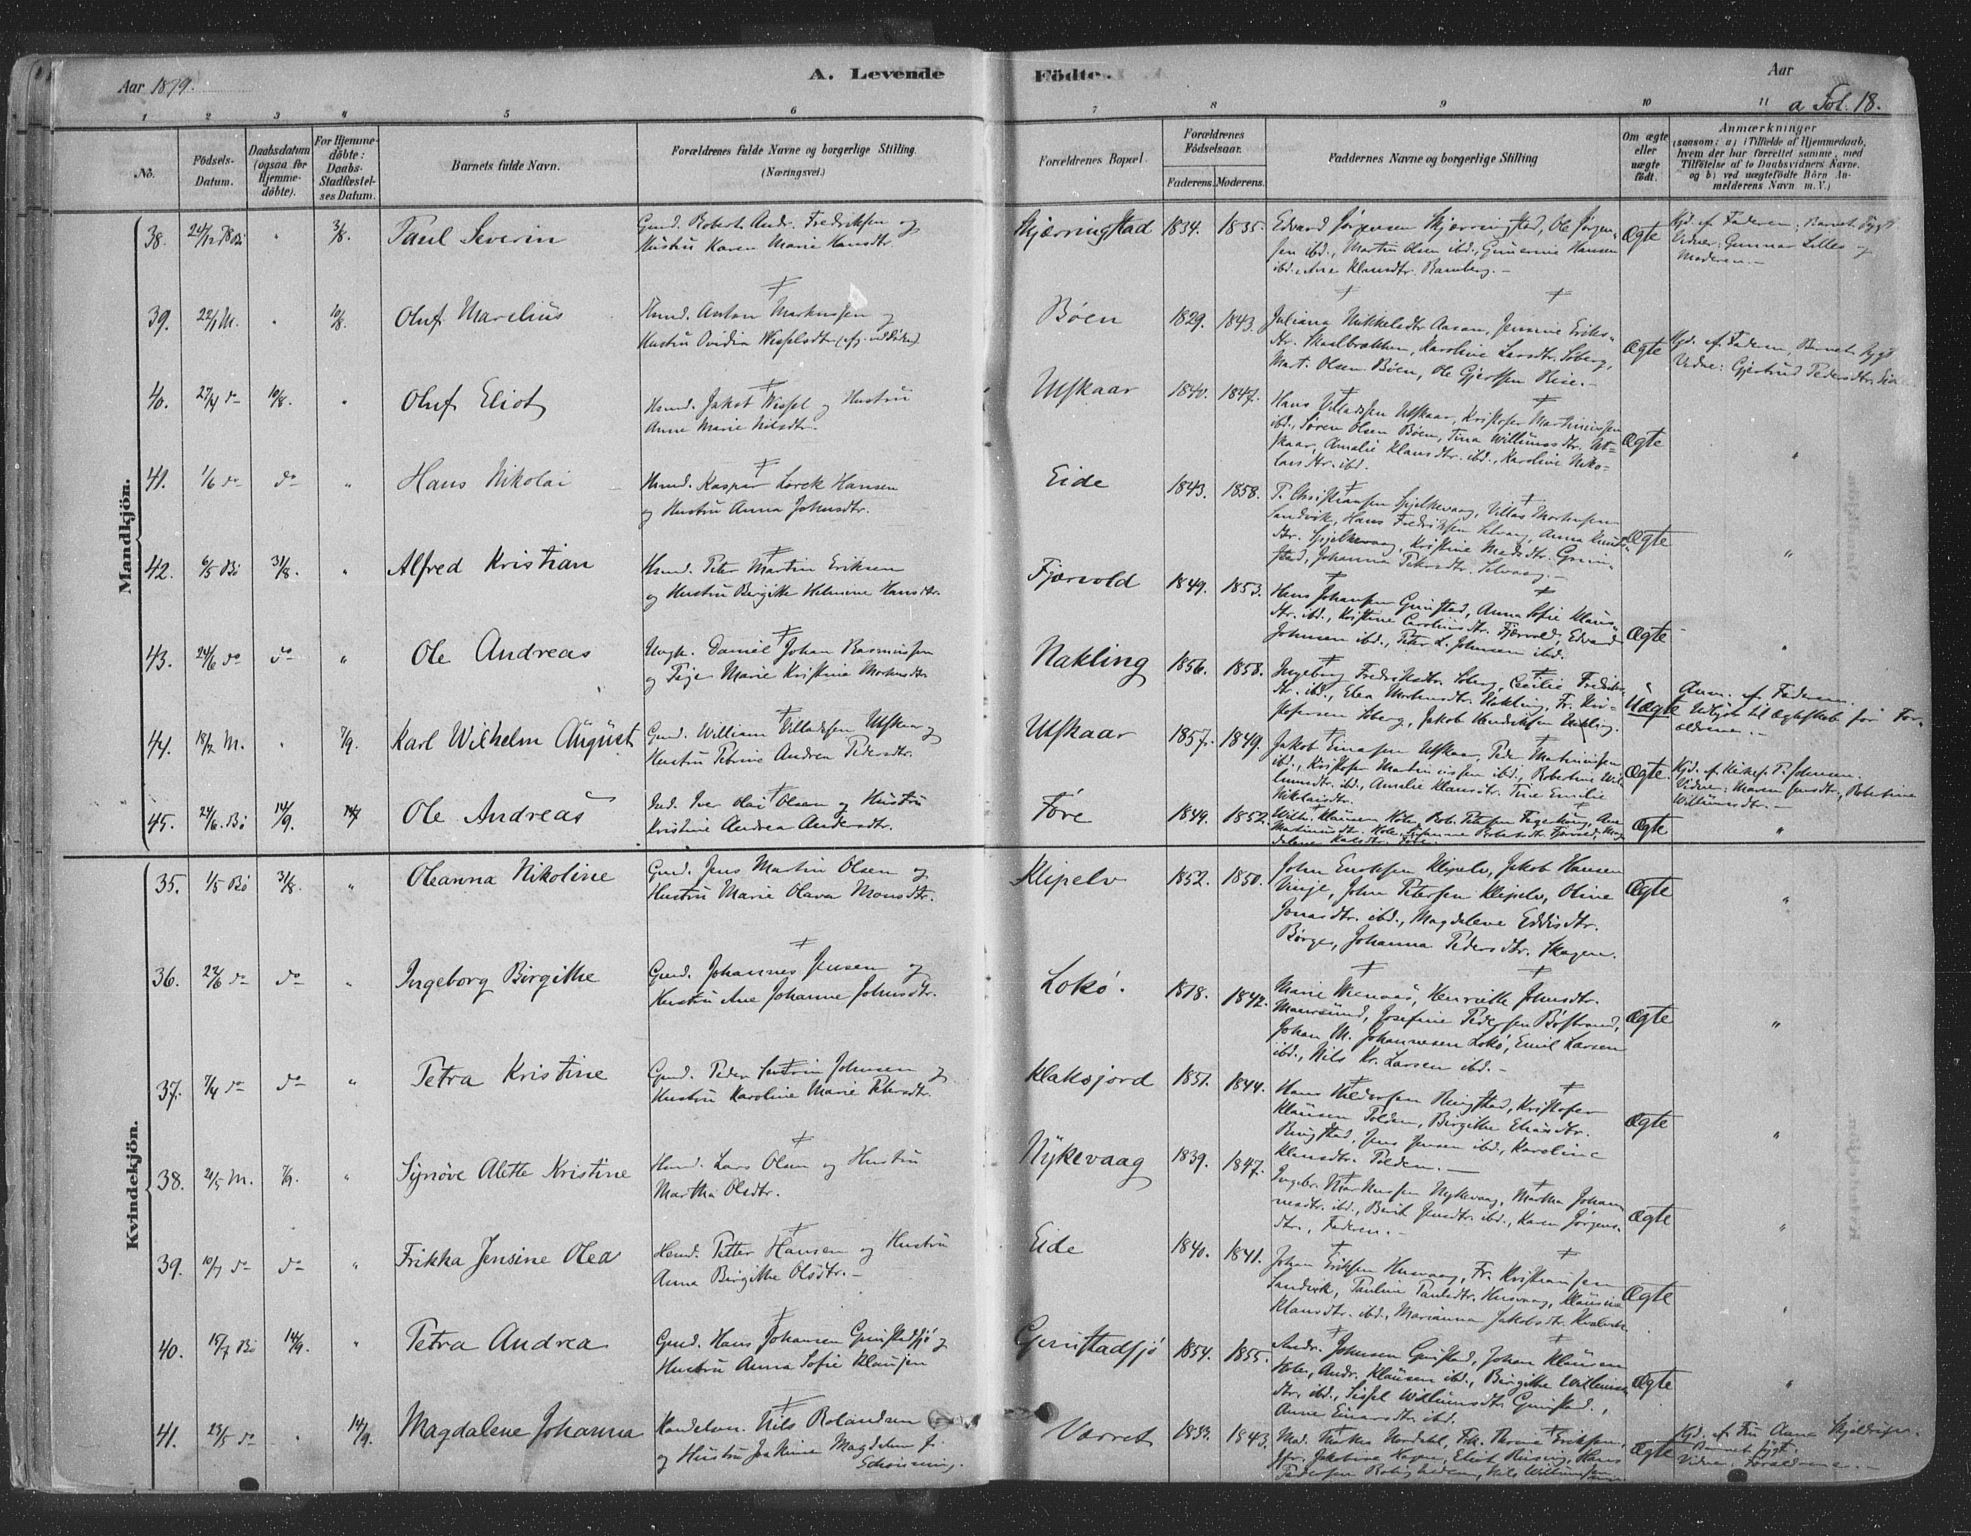 Aar 1879.
A. Levende
Födte.
Aar
a Fol. 18.
1 2 3 4 5 6 7 8 9 10 11
No.
Födsels-
Datum.
Daabsdatum
(ogsaa for
Hjemme-
döbte).
For Hjemme-
döbte:
Daabs-
Stadfæstel-
ses Datum.
Barnets fulde Navn.
Forældrenes fulde Navne og borgerlige Stilling.
(Næringsvei.)
Forældrenes Bopæl.
Forældrenes
Födselsaar.
Faderens. Moderens.
Faddernes Navne og borgerlige Stilling
Om ægte
eller
uægte
födt.
Anmærkninger
(saasom: a) i Tilfælde af Hjemmedaab,
hvem der har forrettet samme, med
Tilföielse af to Daabsvidners Navne,
og b) ved uægtefödte Börn An-
melderens Navn m. V.)
Mandkjön.
38. 3/8. Paul Severin
Gmd. Robert Andr. Fredriksen og
Hustru Karen Marie Hansdtr.
Skjærringstad 1834. 1835.
Edvard Jørgensen Skjærringstad, Ole Jørgen-
sen ibd., Martin Olsen ibd., Hansen
ibd., Ane Klausdtr. Ramberg.
Ægte
Hjd. af Faderen; Barnet sygt
Vidner: Gunnar Lilles og
Moderen.
39. 22/1 M. 10/8. Oluf Marelius
Hmd. Anton Markussen og
Hustru Ovidia
Bøen 1829. 1843.
Juliana Mikkelsdtr Aasan, Jensine Eriks-
dtr. Karoline Larsdtr. Soberg,
Mart. Olsen Bøen, Ole Gjertsen Rise.
Ægte
Hjd. af Faderen, Barnet sygt
Vidne: Gjertrud Pedersdtr.
40. 27/4 do 10/8. " Oluf Eliot
Hmd. Jakob Wissel og Hustru
Anne Marie Nilsdtr.
Utskaar 1840. 1847.
Hans Villadsen Utskaar, Kristofer Martinussen
ibd., Søren Olsen Bøen, Tina Willumsdtr. Ut-
skaar, Amalie Klausdtr. ibd., Karoline Niko-
laisdtr. ibd.
Ægte "
41. 1/6 do do " Hans Nikolai
Hmd. Kaspar Lorck Hansen
og Hustru Anna Johnsdtr.
Eide 1843. 1858.
P. Christiansen Gjelkevaag, Villas Markussen
Sandvik, Hans Fredriksen Selvaag, Anna
dtr. Gjelkevaag, Kristine Madsdtr. Grim-
stad, Johanna Petersdtr. Selvaag.
Ægte "
42. 6/5 Bø 31/8. " Alfred Kristian
Hmd. Peter Martin Eriksen
og Hustru Birgitte Helmine Hansdtr.
Fjærvold 1849. 1853.
Hans Johansen Grimstad, Anna Sofie Klaus-
dtr. ibd., Kristine Carolinsdtr. Fjærvold, Edvard
Johnsen ibd., Peter L. Johnsen ibd.
Ægte "
43. 24/6 do do " Ole Andreas
Ungk. Daniel Johan Rasmussen
og Pige Marie Kristine Markusdtr
Nakling 1856. 1858.
Ingeborg Fredriksdtr. Soberg, Cecilie Fredriks-
dtr. ibd., Elen Markusdtr. Nakling, Fr. Kri-
stofersen Soberg, Jakob Hendriksen Nakling.
Uægte
Anm. af Faderen.
Udlyst til Ægteskab for For-
ældrene.
44. 18/2 M. 7/9. Karl Wilhelm August
Gmd. William Villadsen Utskaar og
Hustru Petrine Andrea Pedersdtr.
Utskaar 1857. 1849.
Jakob Einarsen Utskaar, Peder Martinussen
ibd., Kristofer Martinussen ibd., Robertine Wil-
lumsdtr. ibd., Amalie Klausdtr. Tine Emilie
Nikolaisdtr.
Ægte.
Hjd. af Kirkes. P. Johnsen.
Vidner: Maren Jensdtr., Robertine
Willumsdtr.
45. 24/6. Bø 14/9. Ole Andreas
Iver Olai Olsen og Hustru
Kristine Andrea Andersdtr.
Føre 1849. 1852.
Ægte "
Kvindekjön.
35. 1/5 Bø 31/8. " Oleanna Nikoline
Gmd. Jens Martin Olsen og
Hustru Marie Olava Monsdtr.
Klipelv 1852. 1850.
John Enoksen Klipelv, Jakob Hansen
Vinje, John Petersen Klipelv, Oline
Jonasdtr. ibd., Magdalene Eddisdtr.
Børge, Johanna Pedersdtr. Skagen.
Ægte "
36. 22/6 do do " Ingeborg Birgithe
Gmd. Johannes Jensen og
Hustru Ane Johanne Johnsdtr.
Lokø. 1818. 1842.
Marie Henriette Johnsdtr.
Maursund, Josefine Pedersen Bøstrand,
Johan M. Johannesen Lokø, Emil Larsen
ibd., Nils Kr. Larsen ibd.
Ægte "
37. 7/4 do do " Petra Kristine
Gmd. Peder Severin Johnsen og
Hustru Karoline Marie Petersdtr.
Klaksjord 1851. 1844.
Hans Ringstad, Kristofer
Klausen Tolden, Birgithe Eliasdtr.
Ringstad, Jens Jensen ibd., Karoline
Klausdtr. Tolden.
Ægte "
38. 21/5 M. 7/9. " Synøve Alette Kristine
Hmd. Lars Olsen og Hustru
Martha Olsdtr.
Nykevaag 1839. 1847.
Ingebr. Markussen Nykevaag, Martha Johan-
nesdtr. ibd., Berit Jensdtr. ibd., Karen Jørgens-
dtr., Faderen.
Ægte "
39. 10/7 do do " Frikka Jensine Olea
Hmd. Petter Hansen og Hustru
Anna Birgithe Olsdtr.
Eide 1840. 1841.
Johan Eriksen Husvaag, Fr. Kristiansen
Sandvik, Pauline Paulsdtr. Husvaag, Klausine
Klausdtr. ibd., Marianna Jakobsdtr.
Ægte "
40. 15/7 Bø 14/9. " Petra Andrea
Gmd. Hans Johansen Grimstadsjø og
Hustru Anna Sofie Klausen
Grimstadsjø 1854. 1855.
Andr. Johnsen Grimstad, Johan Klausen
Hole, Andr. Klausen ibd., Birgithe Willums-
dtr. ibd., Sissel Willumsdtr. Grimstad,
Anne Einarsdtr. ibd.
Ægte "
41. 23/5 do 14/9. Magdalene Johanna
Handelsm. Nils Rolandsen
og Hustru Magdalene J.
Schønning.
Værret 1833. 1843.
Ægte
Hjd. af Fru Anna
Barnet sygt.
Vidner: Forældrene.